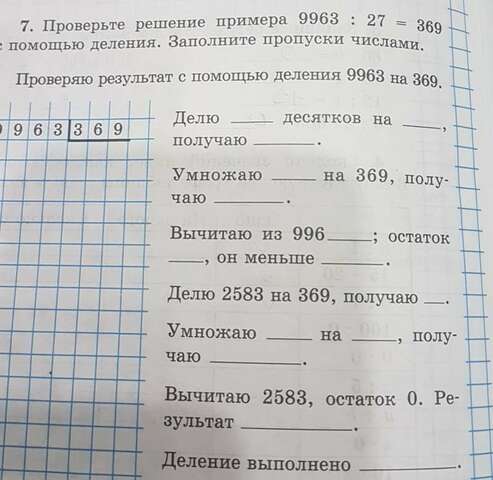 7. Проверьте решение примера 9963 : 27 = 369
с помощью деления. Заполните пропуски числами.
Проверяю результат с помощью деления 9963 на 369.
9 9 6 3 3 6 9
Делю ____ десятков на ____,
получаю ______.
Умножаю ____ на 369, полу-
чаю ______.
Вычитаю из 996 ____; остаток
____, он меньше ______.
Делю 2583 на 369, получаю __.
Умножаю ____ на ____, полу-
чаю ________.
Вычитаю 2583, остаток 0. Ре-
зультат __________.
Деление выполнено _________.